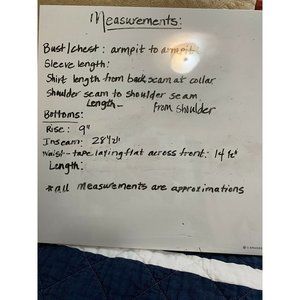 Measurements:
Bust/chest: armpit to armpit
Sleeve length:
Shirt length from back seam at collar
Shoulder seam to shoulder seam
Length- from shoulder
Bottoms:
Rise: 9"
Inseam: 28 1/2"
Waist- tape laying flat across front: 14
Length:
*all measurements are approximations